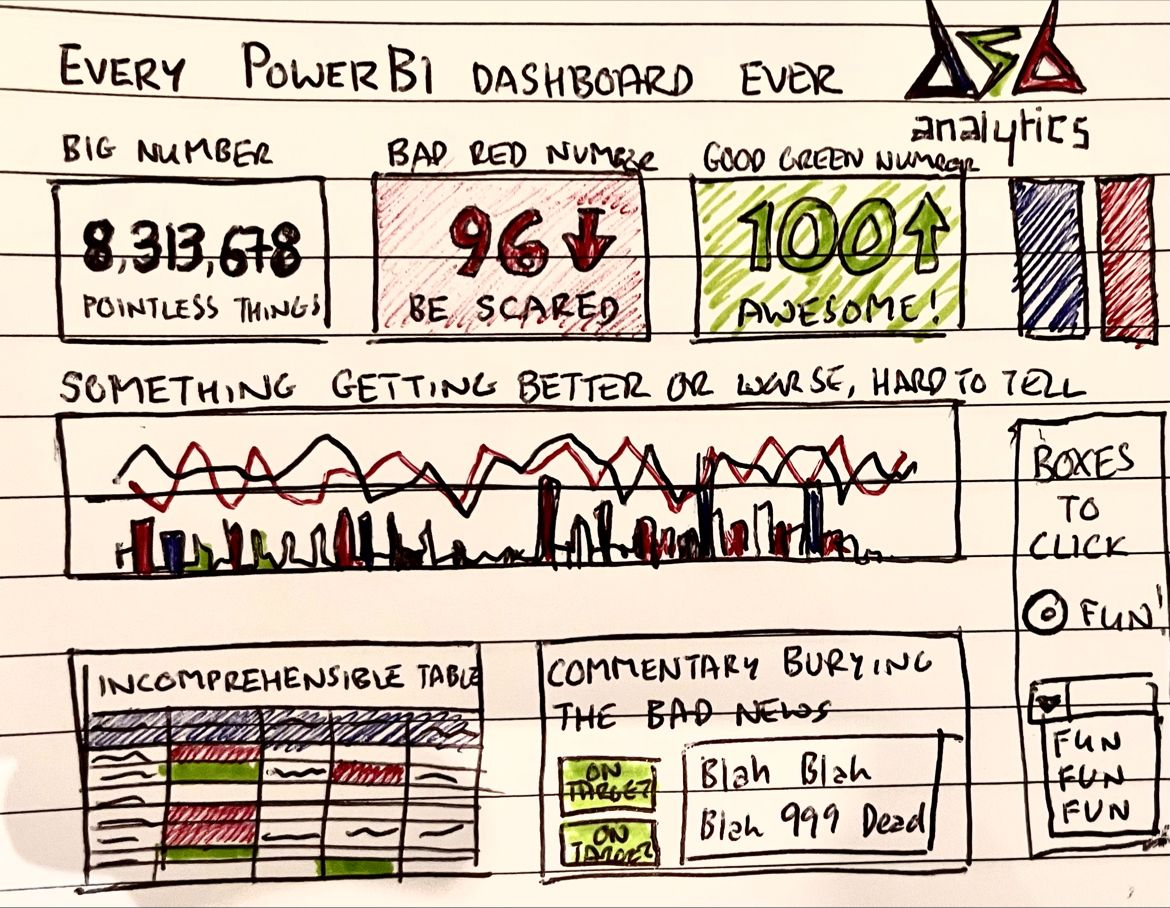 EVERY POWERBI DASHBOARD EVER
analytics
BIG NUMBER
8,313,678
POINTLESS THINGS
BAD RED NUMBER
96
BE SCARED
GOOD GREEN NUMBER
100
AWESOME!
SOMETHING GETTING BETTER OR WORSE, HARD TO TELL
BOXES
TO
CLICK
FUN!
FUN
FUN
FUN
INCOMPREHENSIBLE TABLE
COMMENTARY BURYING
THE BAD NEWS
ON
TARGET
ON
TARGET
Blah Blah
Blah 999 Dead